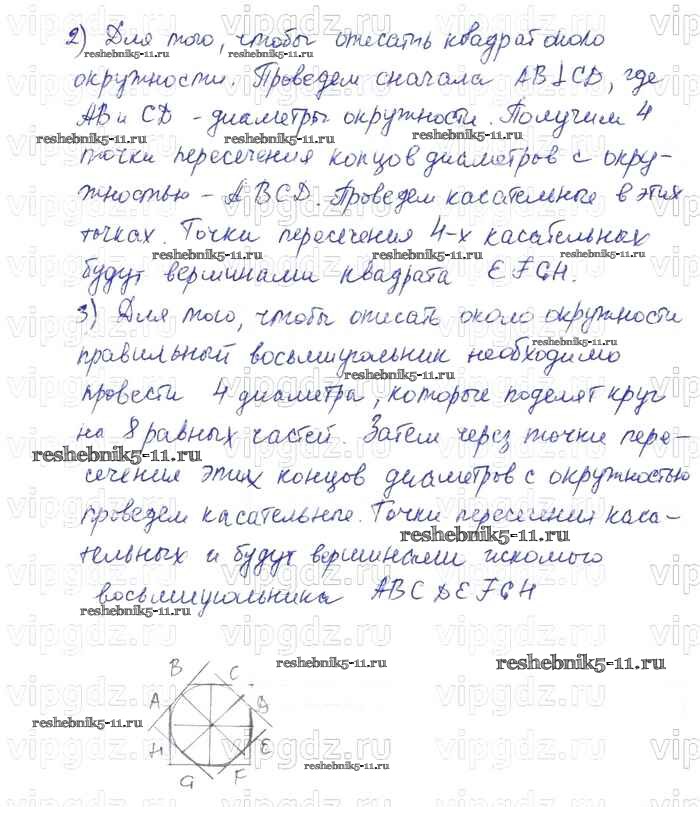 2) Для того, чтобы описать квадрат около
окружности. Проведем сначала AB⊥CD, где
AB и CD - диаметры окружности. Получим 4
точки пересечения концов диаметров с окру-
жностью - ABCD. Проведем касательные в этих
точках. Точки пересечения 4-х касательных
будут вершинами квадрата EFGH.
3) Для того, чтобы описать около окружности
правильный восьмиугольник необходимо
провести 4 диаметра, которые поделят круг
на 8 равных частей. Затем через точки пере-
сечения этих концов диаметров с окружностью
проведем касательные. Точки пересечения каса-
тельных и будут вершинами искомого
восьмиугольника ABCDEFGH
B C
A D
H E
G F
reshebnik5-11.ru
vipgdz.ru